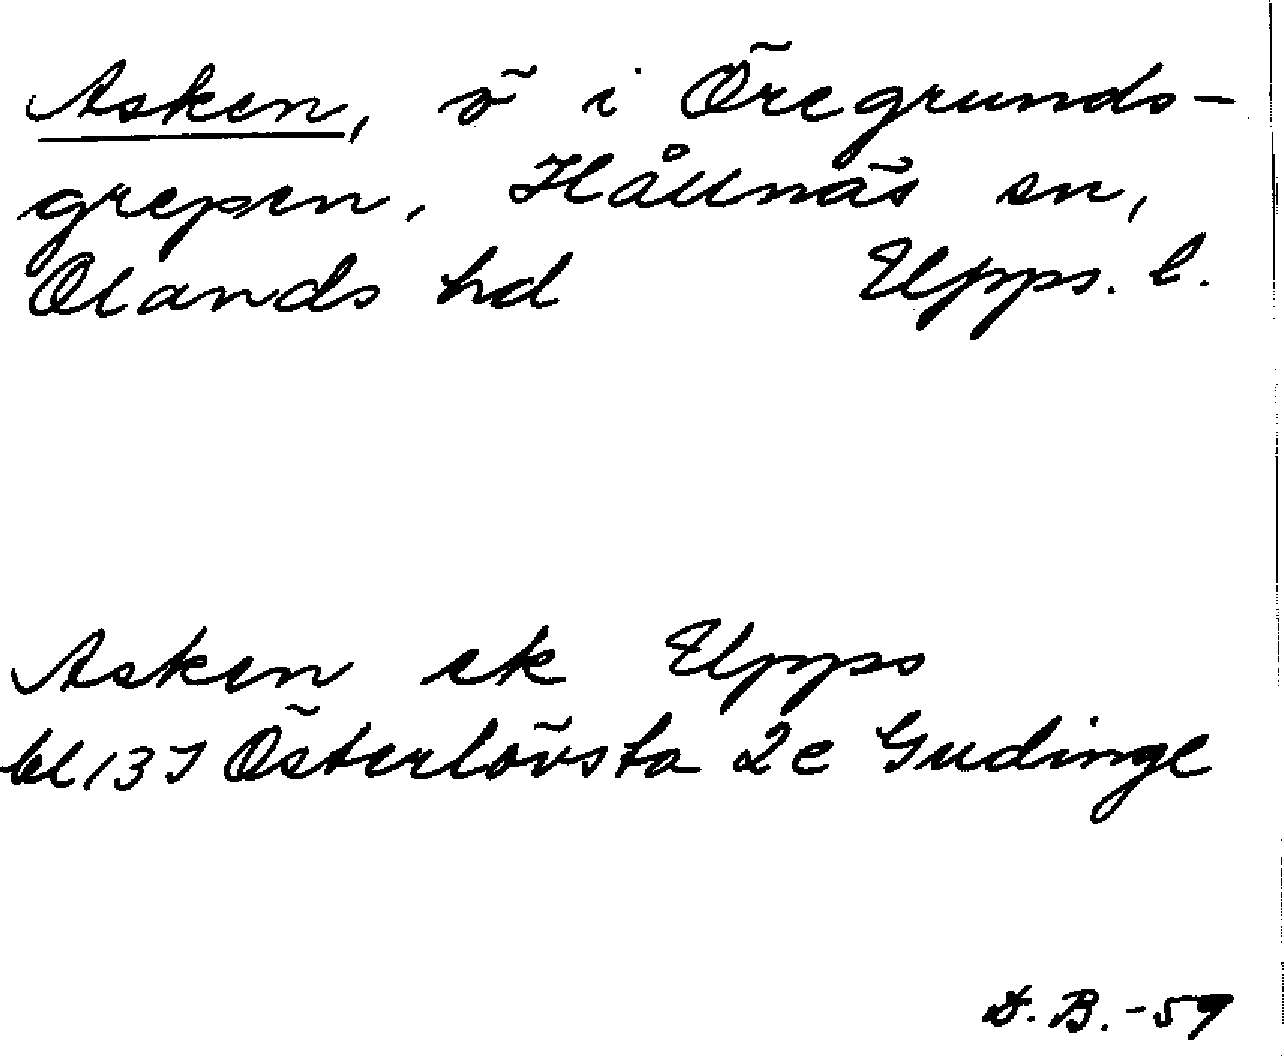 Asken, ö i Öregrunds-
grepen, Hållnäs sn,
Olands hd Upps. l.
Asken ek Upps
bl 13J Österlövsta 2c Gudinge
D. B. -59